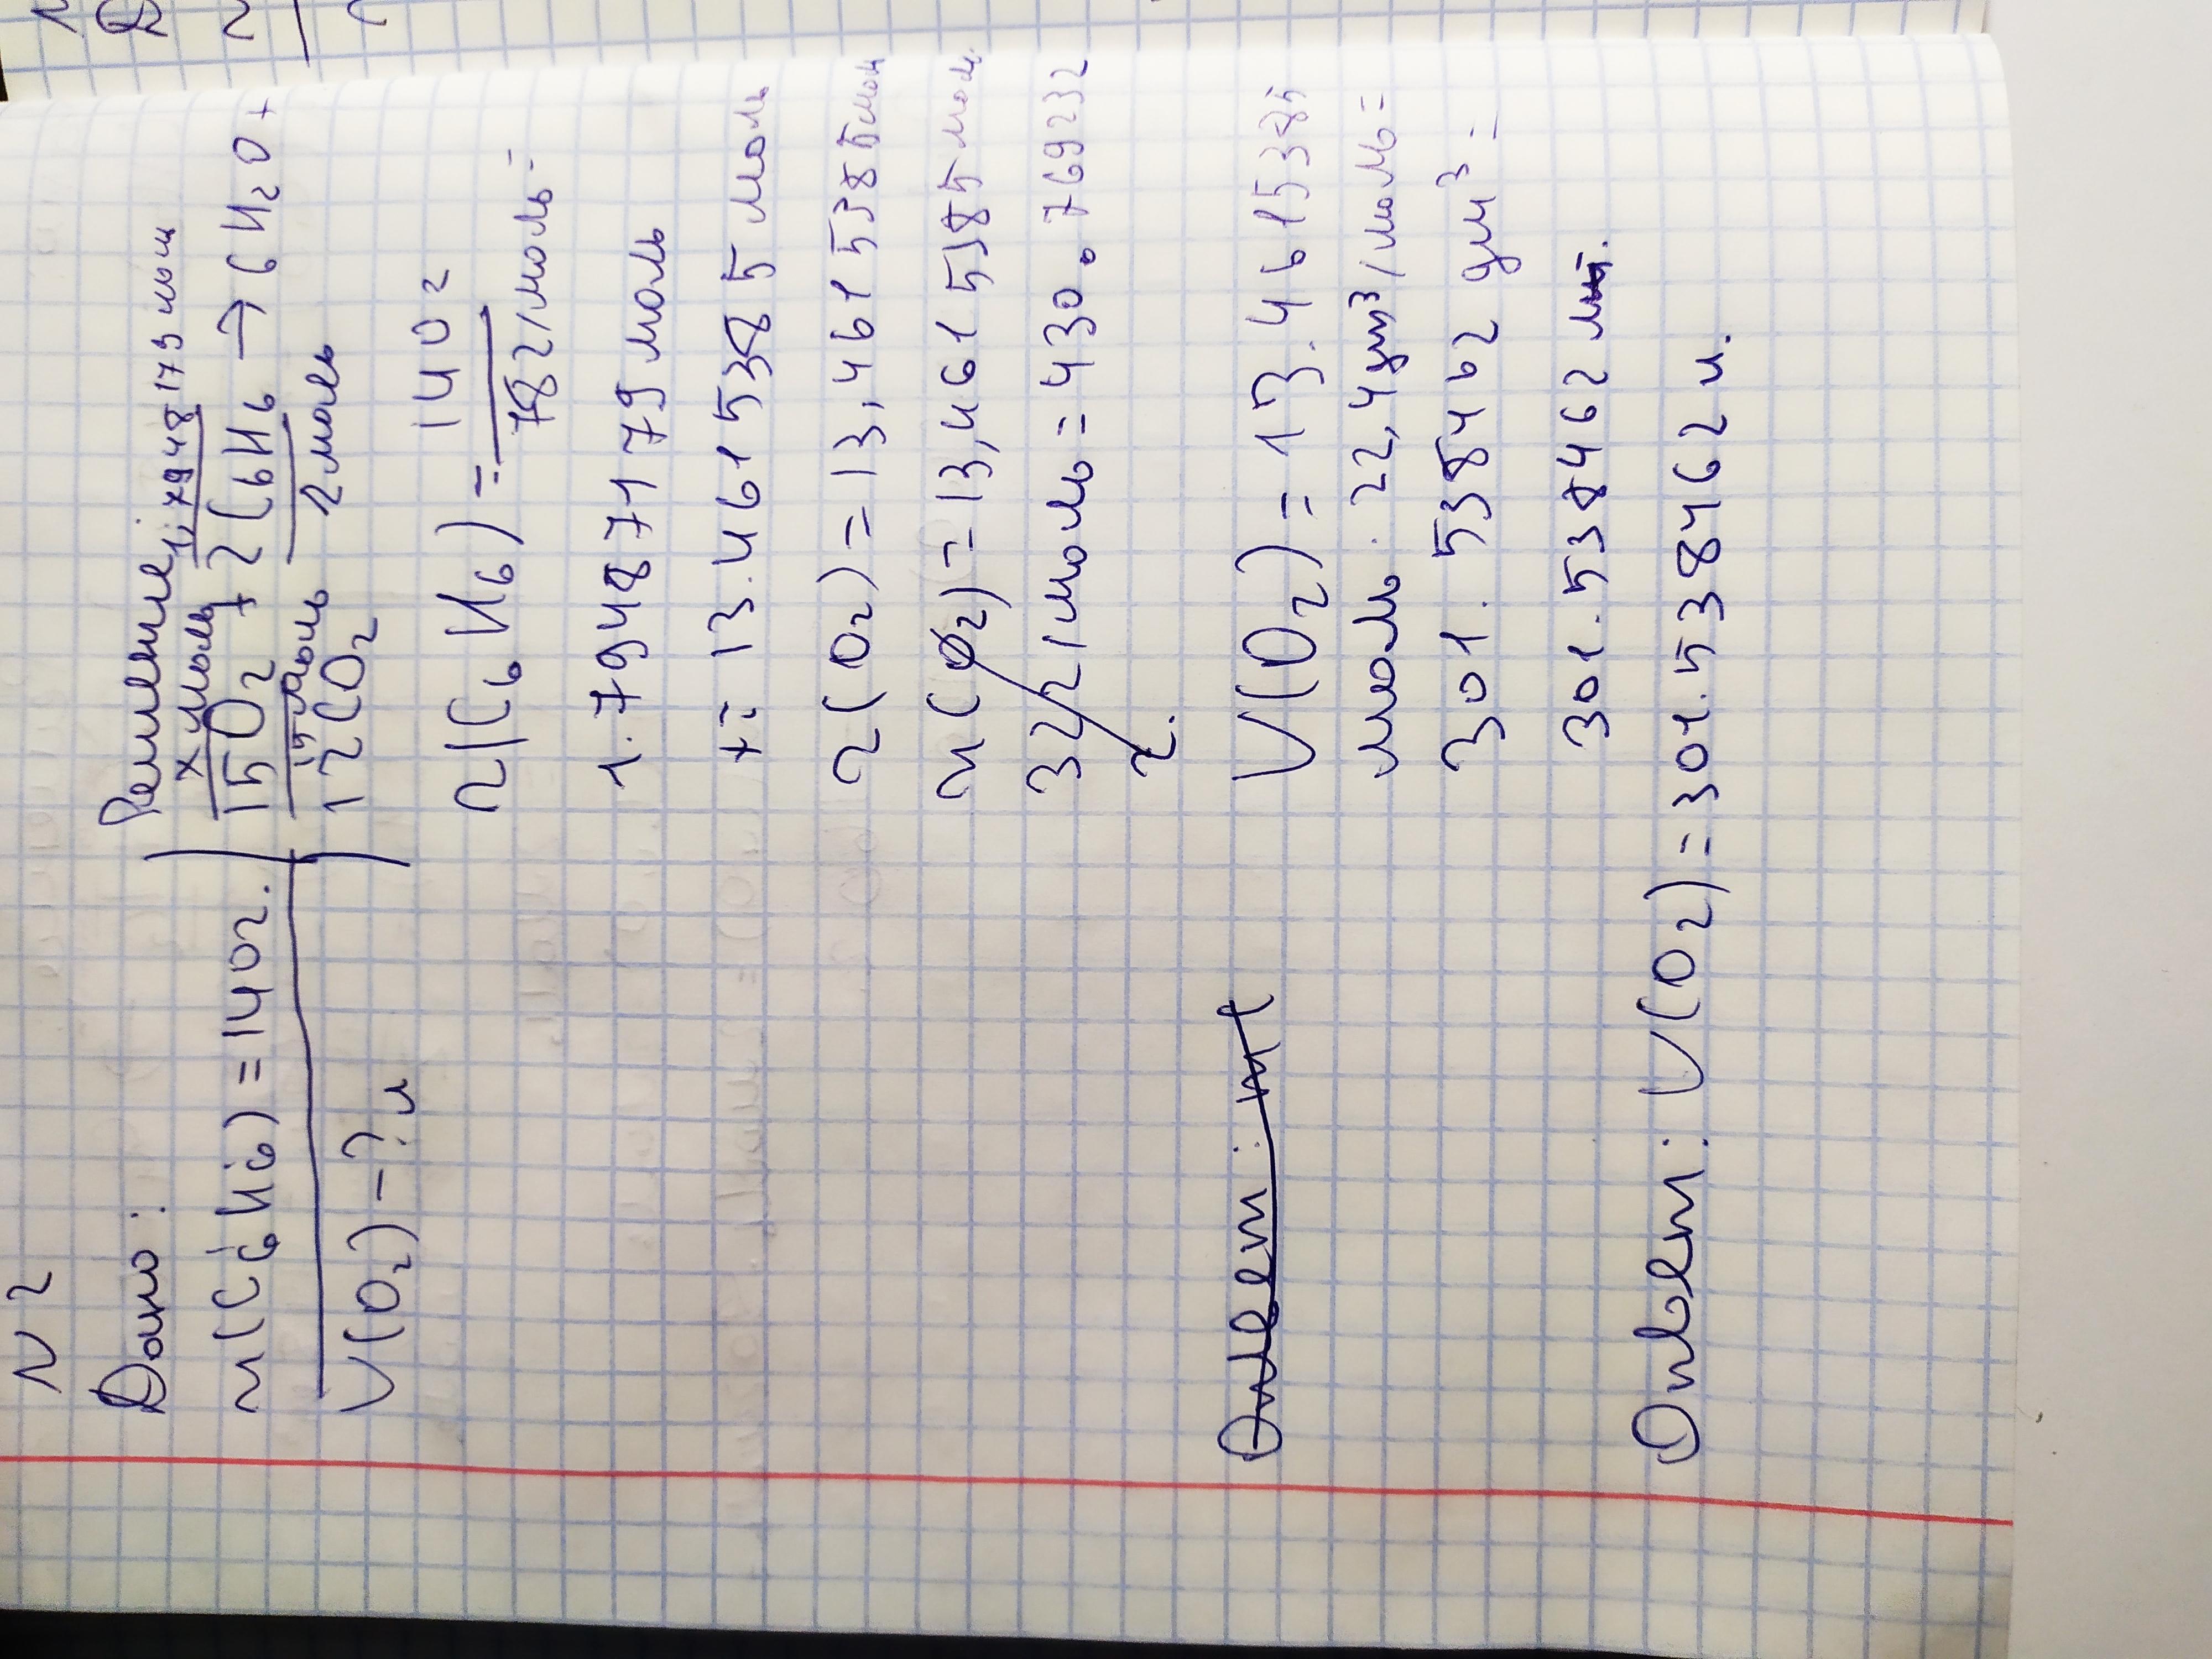 N 2
Дано:
m(C6H6)=140г.
V(O2)-? л
Решение:
x моль 1,7948173 мол
15O2 + 2C6H6 → 6H2O +
15 моль 2 моль
12CO2
n(C6H6) = 140г
78г/моль =
1.794871 79 моль
x = 13.4615385 моль
n(O2) = 13,4615385 моль
m(O2) = 13,4615385 моль
32г/моль = 430.769232
г.
V(O2) = 13.4615385
моль · 22,4дм³/моль =
301.538462 дм³ =
301.538462 л.
Ответ: m
Ответ: V(O2)=301.538462 л.